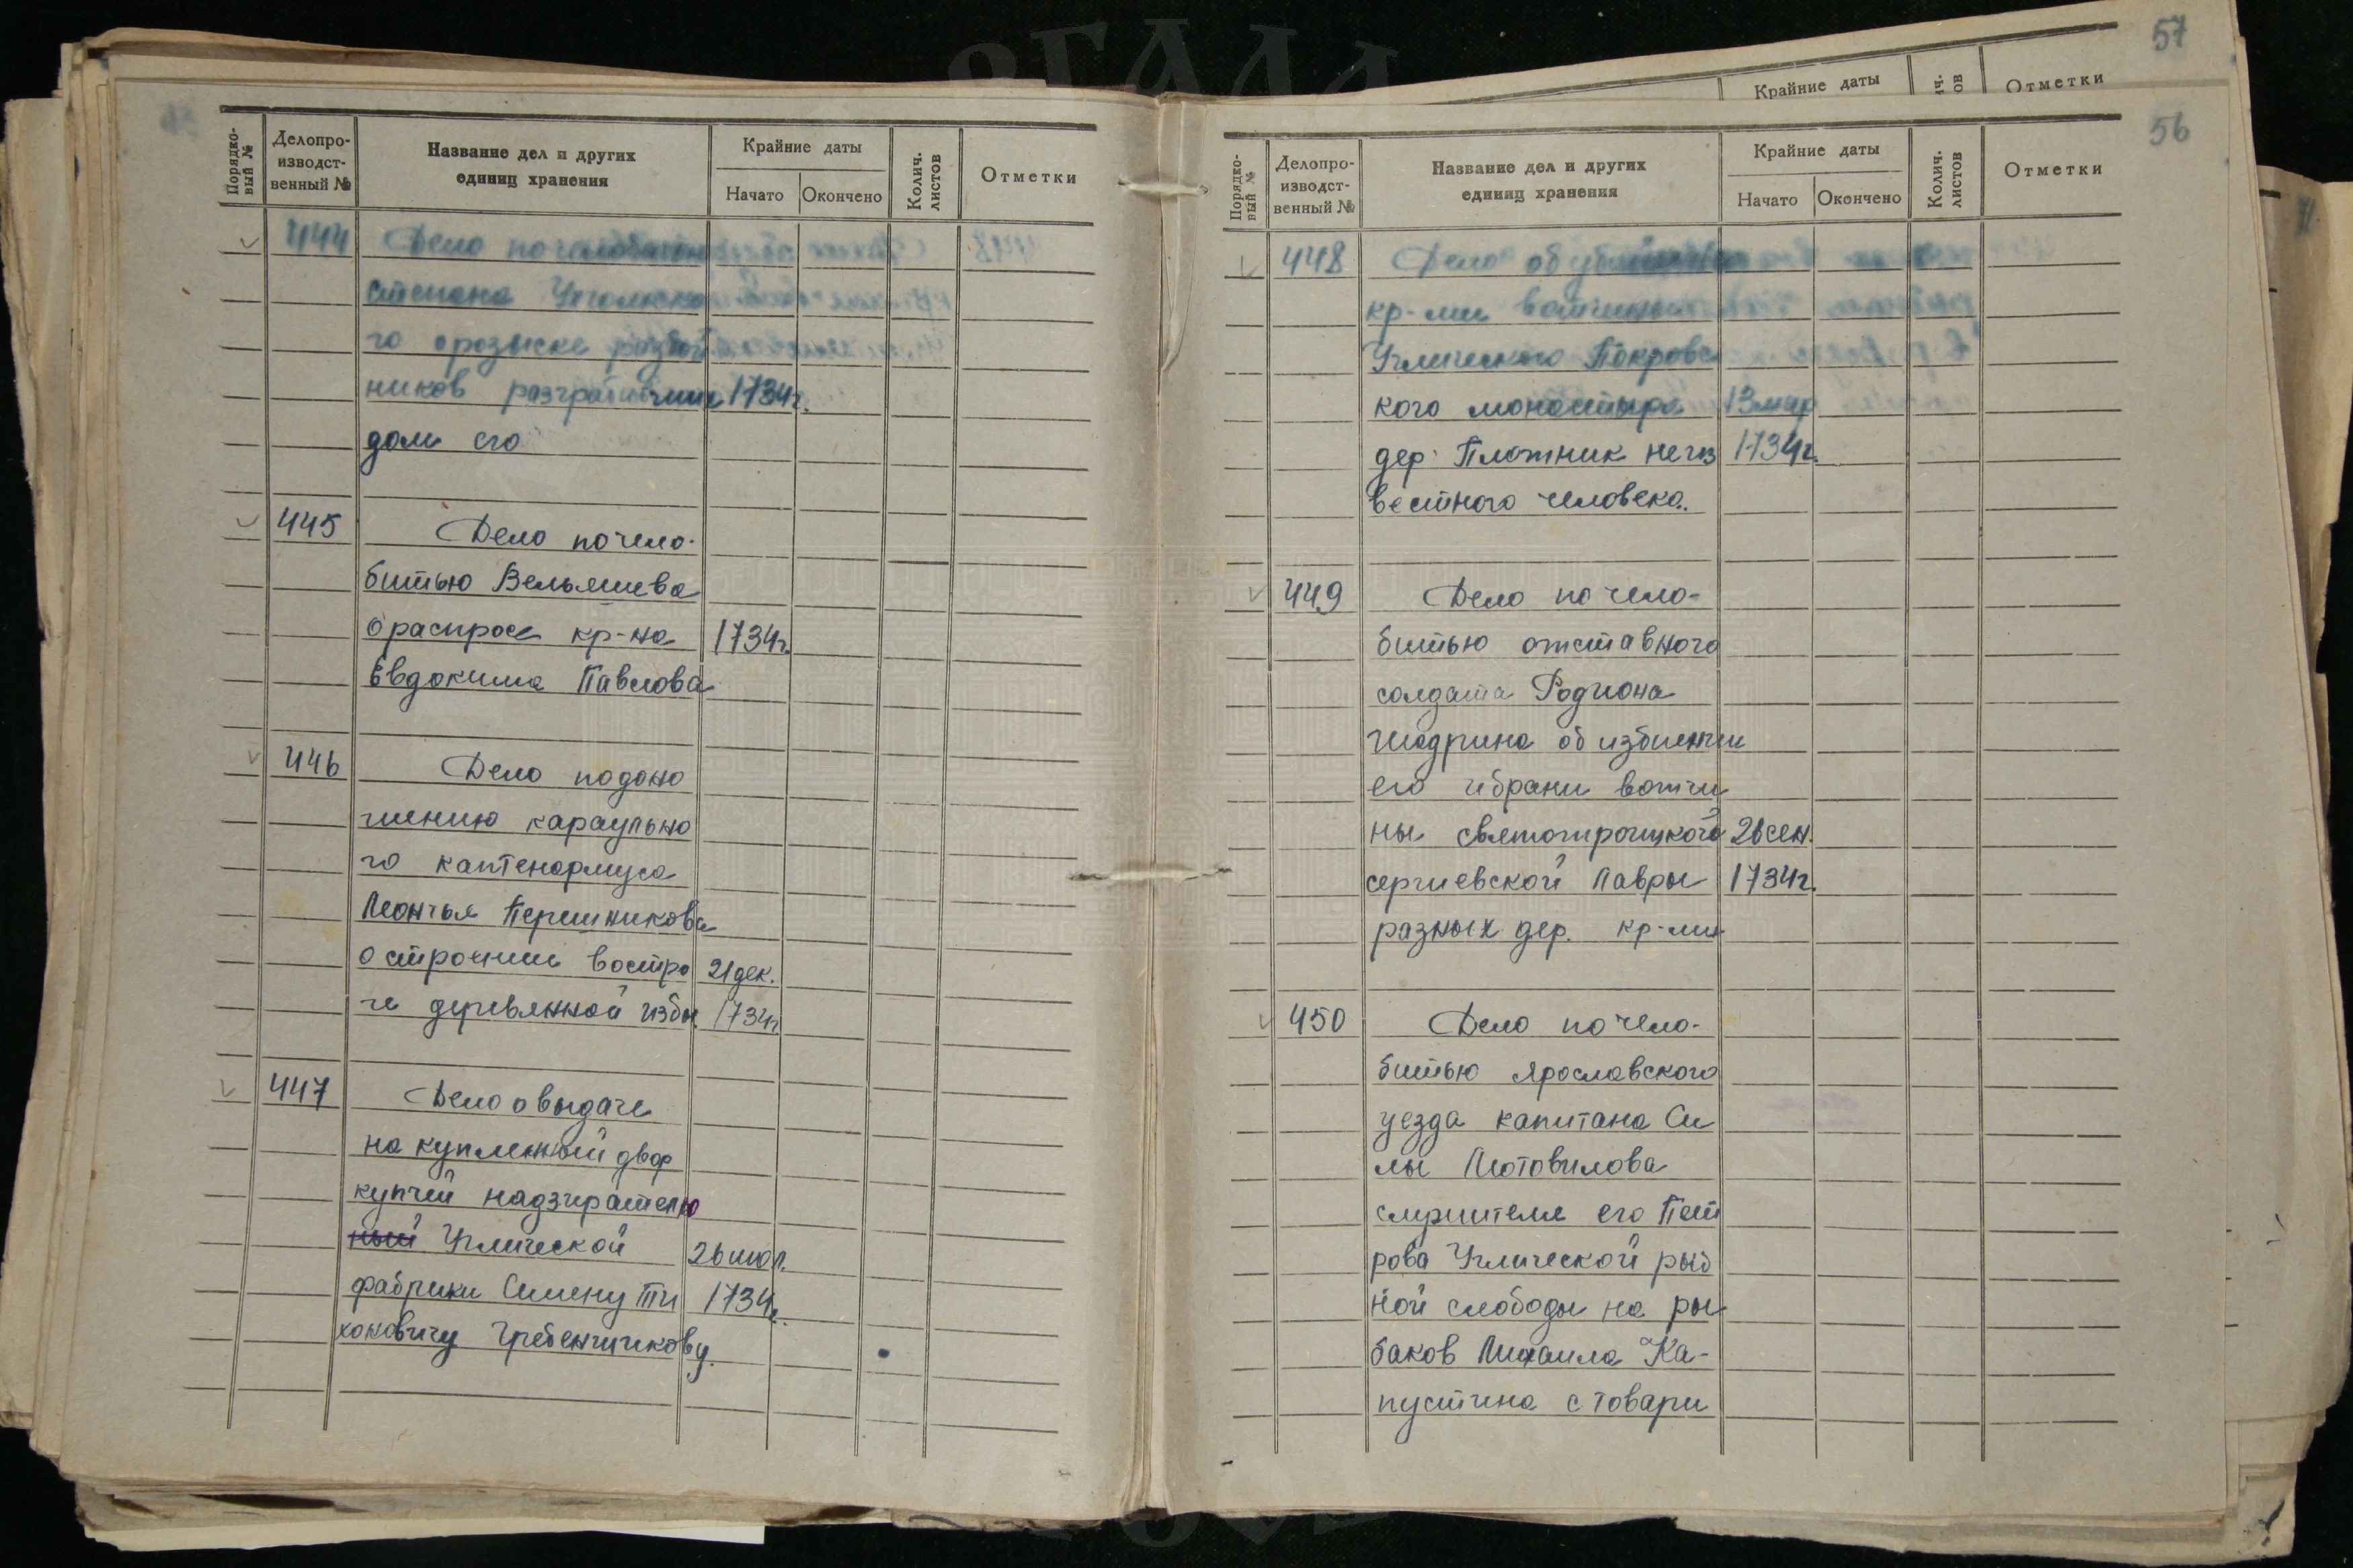 57
Крайние даты
Отметки
Порядко-
вый №
Делопро-
изводст-
венный №
Название дел и других
единиц хранения
Крайние даты
Начато
Окончено
Колич.
листов
Отметки
444 Дело по
Степана
го о розыске
ников разграбивших 1734г.
дом его
445 Дело по чело-
битью Вельяшева
о распросе кр-на 1734г.
Евдокима Павлова
446 Дело по доно
шению караульно
го каптенармуса
Леонтья
о строении востро 21 дек.
ге деревянной избы 1734г
447 Дело о выдаче
на купленный двор
купчей надзирателю
Углической 26 июл.
фабрики Симену Ти 1734г.
хоновичу Гребенщикову.
56
Порядко-
вый №
Делопро-
изводст-
венный №
Название дел и других
единиц хранения
Крайние даты
Начато
Окончено
Колич.
листов
Отметки
448 Дело об
кр-ми вотчины
Углического Покровс
кого монастыря 13 мар
дер. Плотник неиз 1734г.
вестного человека.
449 Дело по чело-
битью отставного
солдата Родиона
Шадрина об избиении
его и брани вотчи
ны святотроицкого 26 сен.
сергиевской Лавры 1734г.
разных дер. кр-ми
450 Дело по чело-
битью Ярославского
уезда капитана Си
лы Мотовилова
служителя его Пет
рова Углической рыб
ной слободы на ры
баков Михаила Ка-
пустина с товари